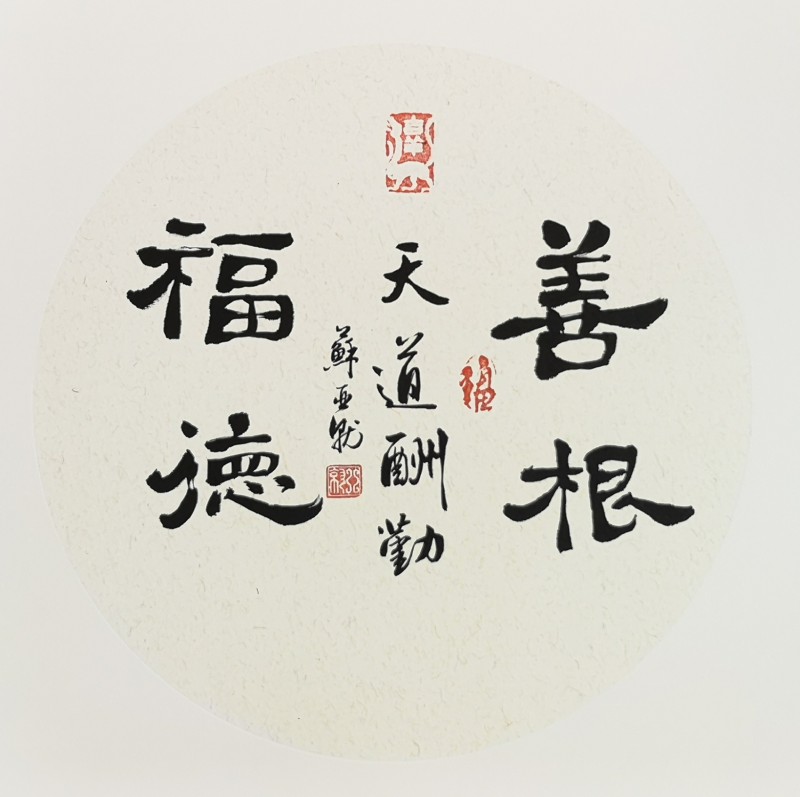 善根
天道酬勤
福德
蘇亚
福